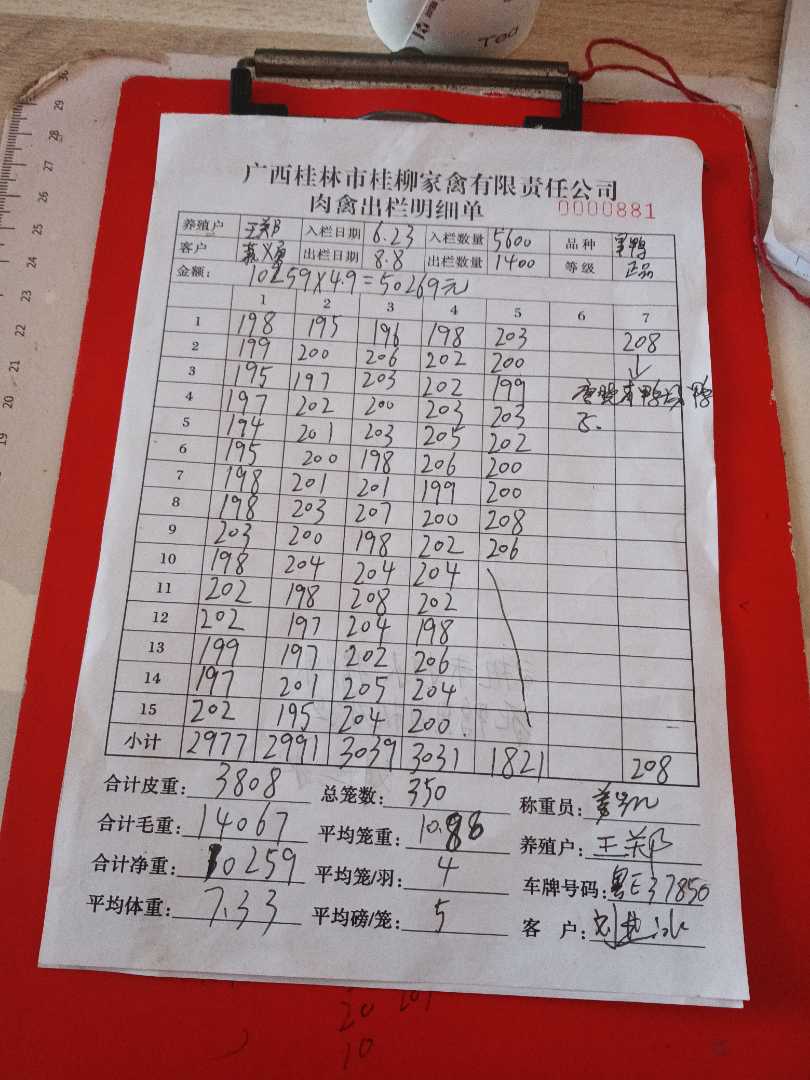 广西桂林市桂柳家禽有限责任公司
肉禽出栏明细单 0000881
养殖户 王郑 入栏日期 6.23 入栏数量 5600 品种
客户 出栏日期 8.8 出栏数量 1400 等级 正品
金额: 10259×4.9=50269元
1 2 3 4 5 6 7
1 198 195 196 198 203 208
2 199 200 206 202 200
3 195 197 203 202 199
4 197 202 200 203 203
5 194 201 203 205 202
6 195 200 198 206 200
7 198 201 201 199 200
8 198 203 207 200 208
9 203 200 198 202 206
10 198 204 204 204
11 202 198 208 202
12 202 197 204 198
13 199 197 202 206
14 197 201 205 204
15 202 195 204 200
小计 2977 2991 3039 3031 1821 208
合计皮重: 3808 总笼数: 350 称重员:
合计毛重: 14067 平均笼重: 10.88 养殖户: 王郑
合计净重: 10259 平均笼/羽: 4 车牌号码: 粤E37850
平均体重: 7.33 平均磅/笼: 5 客户:
20 201
10